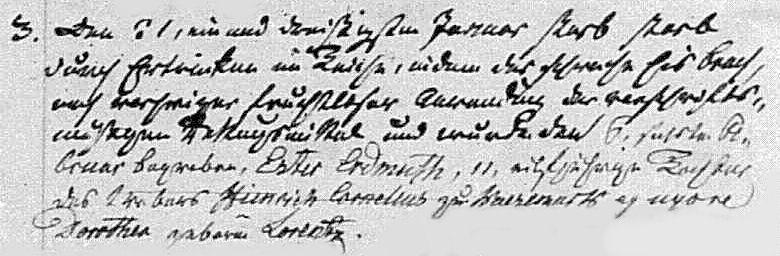 3. Den 31, ein und dreißigsten Januar starb starb
durch Ertrinken im Teiche, indem das schwache Eis brach,
nach vorheriger fruchtloser Anwendung der vorschrifts-
mäßigen Rettungsmittel und wurde den 6. sechsten Fe-
bruar begraben, Ester Erdmuth, 11, eilfjährige Tochter
des Webers Heinrich Cornelius zu ex uxore
Dorothea geborene Lorentz.